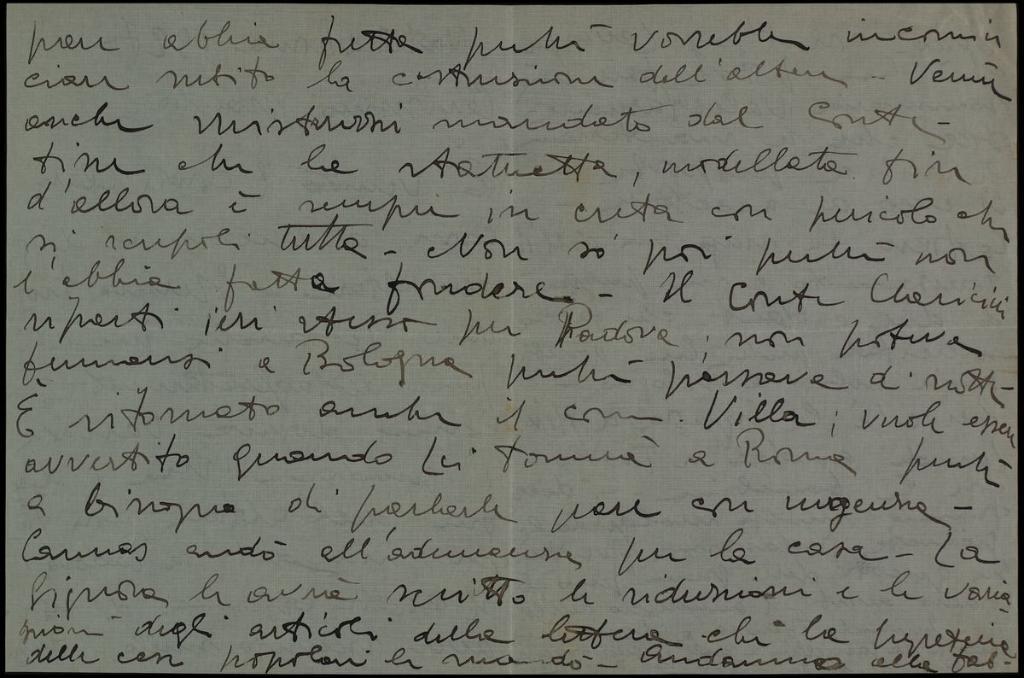 pare abbia fretta perché vorrebbe incomin
ciare subito la costruzione dell'altare – Venne
anche Misturzzi mandato dal Conte –
dire che la statuetta, modellata fin
d'allora è sempre in creta con pericolo che
si screpoli tutta – Non so poi perché non
l'abbia fatta fondere. – Il Conte Claricini
ripartì ieri stesso per Padova; non poteva
fermarsi a Bologna perché passava di notte –
È ritornato anche il com. Villa; vuole essere
avvertito quando Lei tornerà a Roma perché
a bisogno di parlarle pare con urgenza –
Cannas andò all'adunanza per la casa – La
Signora le avrà scritto le riduzioni e le varia
zioni degli articoli della lettera che la Segreteria
delle case popolari le mandò – Andammo alla fab-